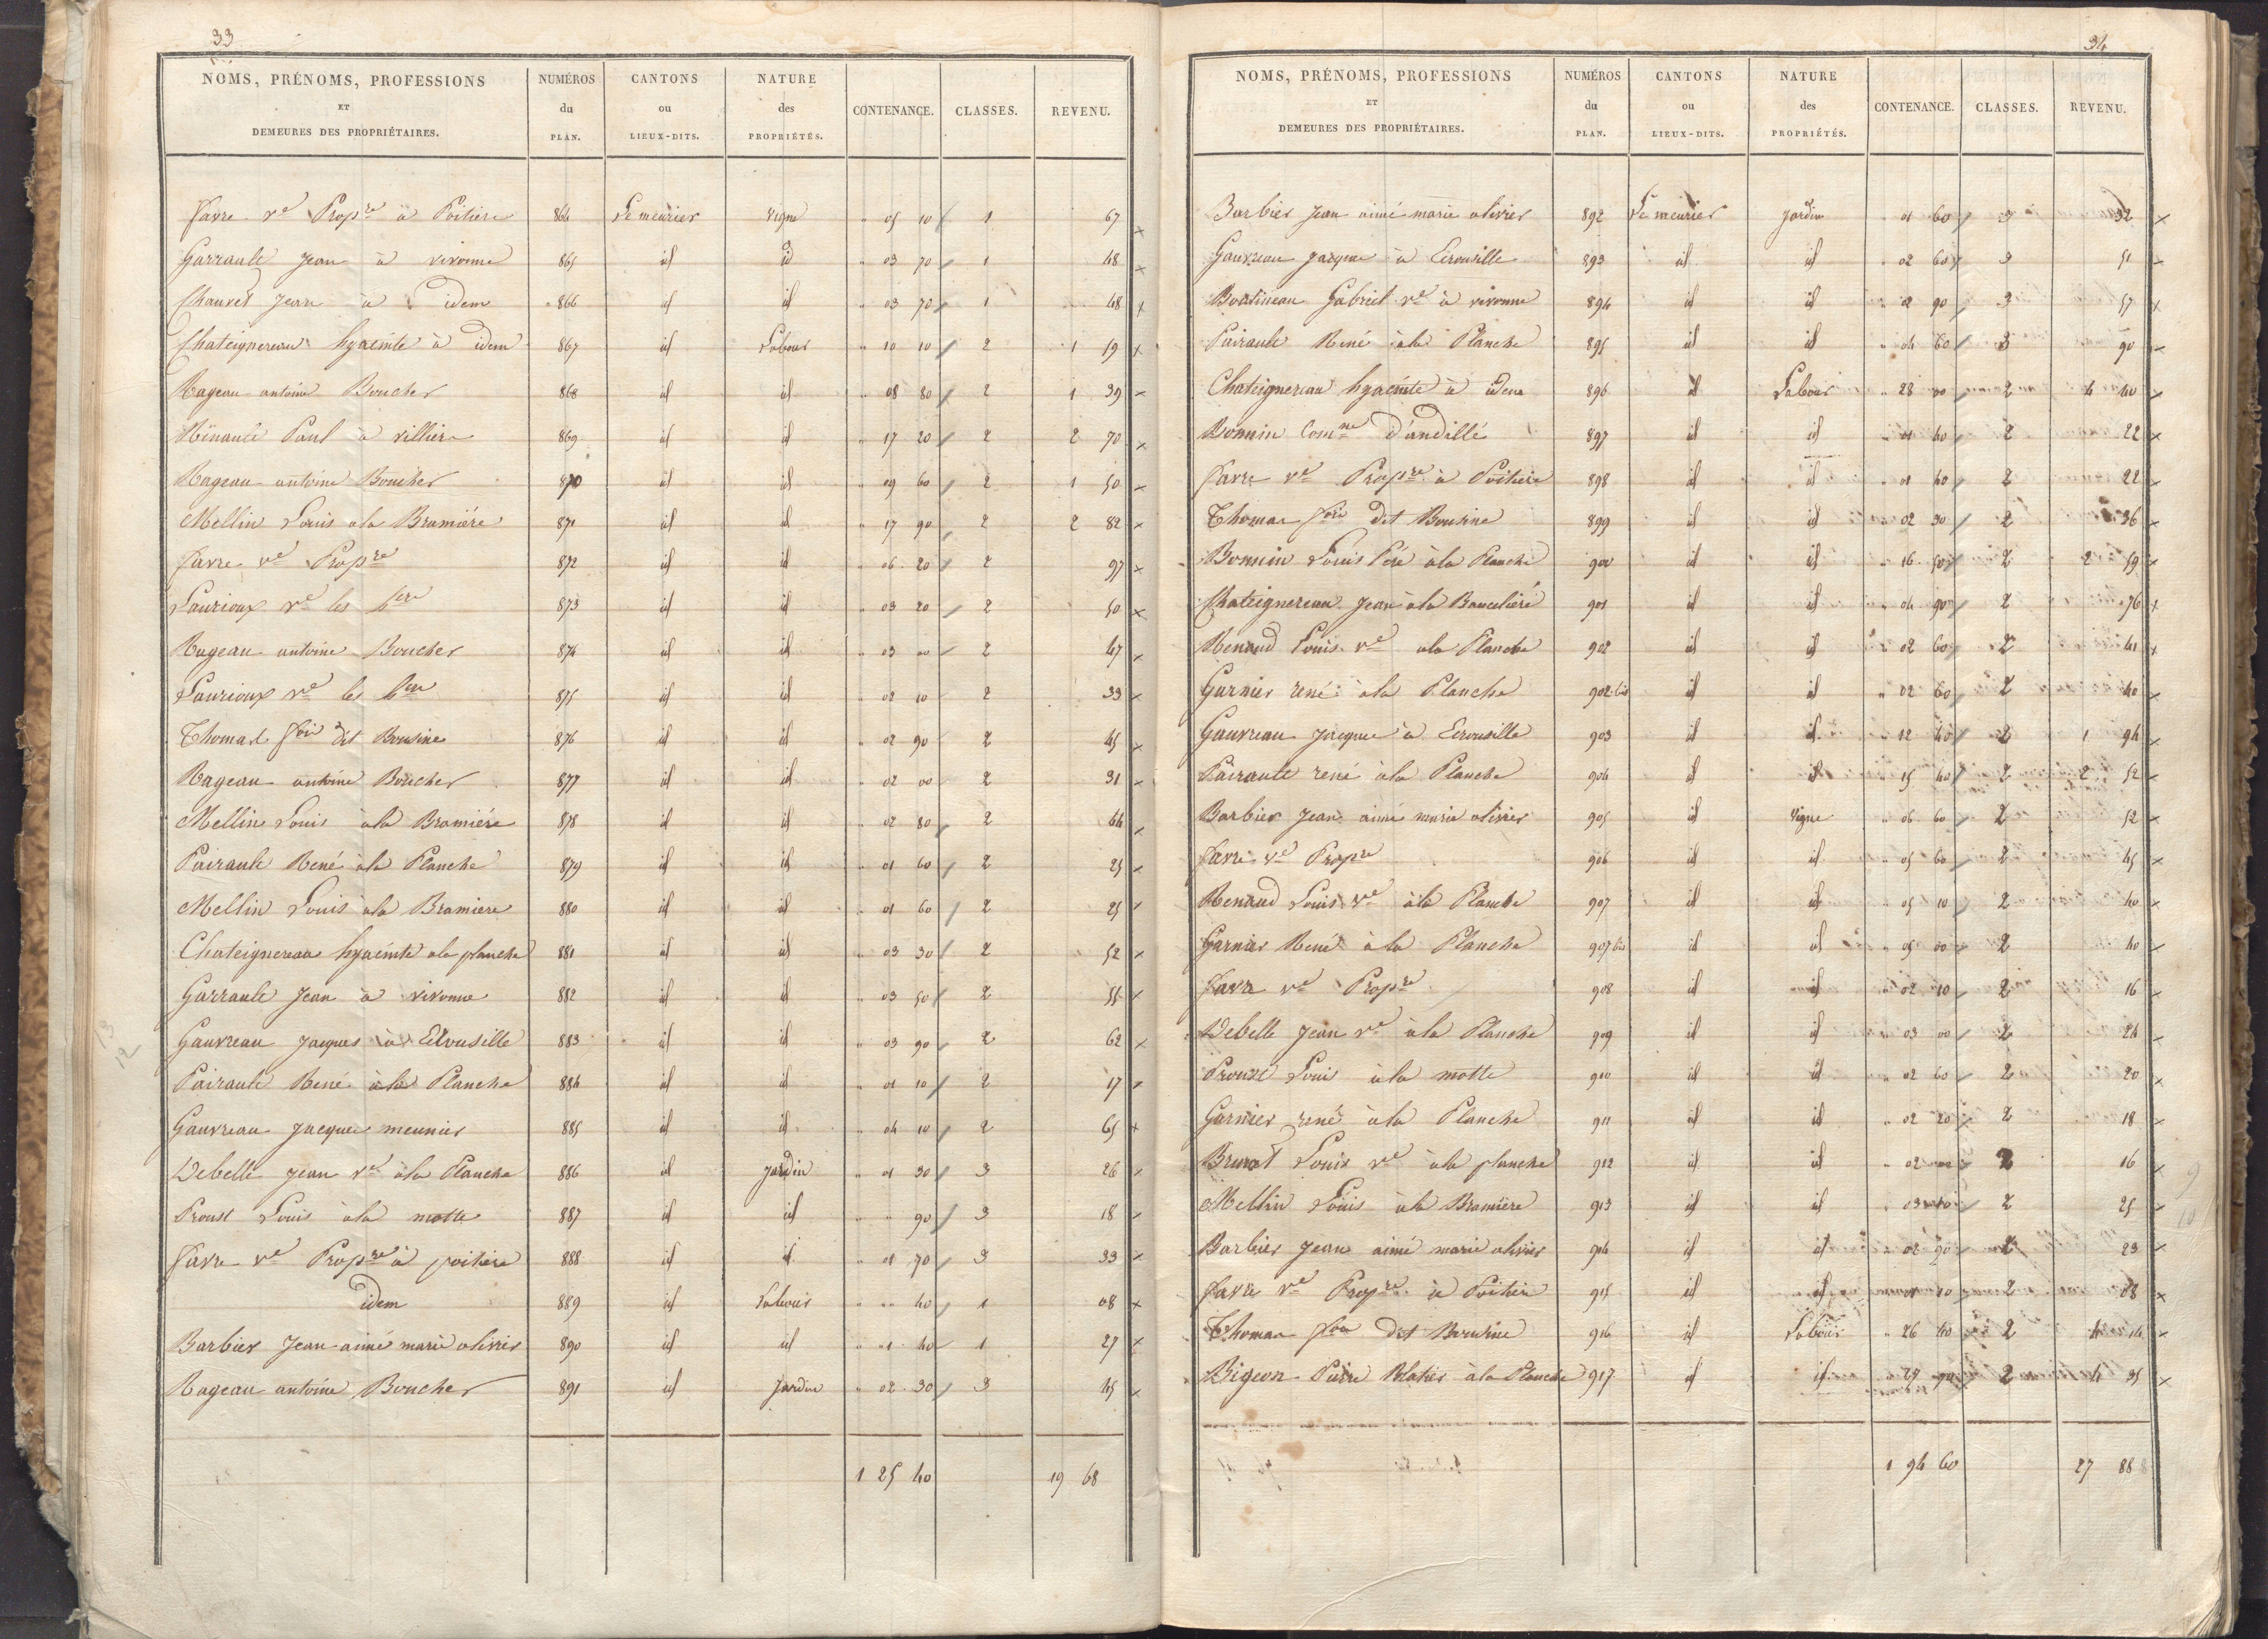 33
NOMS, PRÉNOMS, PROFESSIONS ET DEMEURES DES PROPRIÉTAIRES. NUMÉROS du PLAN. CANTONS ou LIEUX-DITS. NATURE des PROPRIÉTÉS. CONTENANCE. CLASSES. REVENU.
favre ve Propre à Poitiers 864 Le meurier vigne " 05 10 1 67
Garrault Jean à vivonne 865 id id " 03 70 1 48
Chauvet Jean à idem 866 id id " 03 70 1 48
Chateignereau hyacinte à idem 867 id Labour " 10 10 2 1 19
Rageau antoine Boucher 868 id id " 08 80 2 1 39
Minault Paul à villiers 869 id id " 17 20 2 2 70
Rageau antoine Boucher 870 id id " 09 60 2 1 50
Mellin Louis ala Bramière 871 id id " 17 90 2 2 82
favre ve Propre 872 id id " 06 20 2 97
Laurioux ve les hers 873 id id " 03 20 2 50
Rageau antoine Boucher 874 id id " 03 00 2 47
Laurioux ve les hers 875 id id " 02 10 2 33
Thomas fois dit Bousine 876 id id " 02 90 2 45
Rageau antoine Boucher 877 id id " 02 00 2 31
Mellin Louis àla Bramière 878 id id " 02 80 2 44
Pairault René àla Planche 879 id id " 01 60 2 25
Mellin Louis àla Bramiere 880 id id " 01 60 2 25
Chateignereau hyacinte ala planche 881 id id " 03 30 2 52
Garrault Jean à vivonne 882 id id " 03 50 2 55
Gauvreau Jacques à 883 id id " 03 90 2 62
Pairault René àla Planche 884 id id " 01 10 2 17
Gauvreau Jacques meunier 885 id id " 04 10 2 65
Debelle Jean ve àla Planche 886 id jardin " 01 30 3 26
Proust Louis àla motte 887 id id " " 90 3 18
favre ve Propre à poitiers 888 id id " 01 70 3 33
idem 889 id Labour " " 40 1 08
Barbier Jean aimé marie olivier 890 id id " 01 40 1 27
Rageau antoine Boucher 891 id jardin " 02 30 3 45
1 25 40 19 68
34
NOMS, PRÉNOMS, PROFESSIONS ET DEMEURES DES PROPRIÉTAIRES. NUMÉROS du PLAN. CANTONS ou LIEUX-DITS. NATURE des PROPRIÉTÉS. CONTENANCE. CLASSES. REVENU.
Barbier Jean aimé marie olivier 892 Le meurier jardin " 01 60 3 32
Gauvreau jacques à 893 id id " 02 60 3 51
Gabriel ve à vivonne 894 id id " 02 90 3 57
Pairault René àla Planche 895 id id " 04 60 3 90
Chateignereau hyacinte à idem 896 id Labour " 28 00 2 4 40
Bonnin Comne d'andillé 897 id id " 01 40 2 22
favre ve Propre à Poitiers 898 id id " 01 40 2 22
Thomas fois dit Bousine 899 id id " 02 30 2 36
Bonnin Louis Père àla Planche 900 id id " 16 50 2 2 59
Chateignereau Jean àla 901 id id " 04 90 2 76
Renaud Louis ve ala Planche 902 id id " 02 60 2 41
Garnier rené àla Planche 902 bis id id " 02 60 2 40
Gauvreau Jacques à 903 id id " 12 40 2 1 94
Pairault rené àla Planche 904 id id " 15 40 2 2 52
Barbier Jean aimé marie olivier 905 id Vigne " 06 60 2 52
favre ve Propre 906 id id " 05 60 2 45
Renaud Louis ve àla Planche 907 id id " 05 10 2 40
Garnier René àla Planche 907 bis id id " 05 00 2 40
favre ve Propre 908 id id " 02 10 2 16
Debelle Jean ve àla Planche 909 id id " 03 00 2 24
Proust Louis àla motte 910 id id " 02 60 2 20
Garnier rené àla Planche 911 id id " 02 20 2 18
Brunet Louis ve àla planche 912 id id " 02 2 16
Mellin Louis àla Bramière 913 id id " 03 2 25
Barbier Jean aimé marie olivier 914 id id " 02 90 2 23
favre ve Propre à Poitiers 915 id id " 01 10 2 08
Thomas fois dit Bousine 916 id Labour " 26 40 2 4 14
Bigeon Pierre àla Planche 917 id id " 27 90 2 4 35
1 94 60 27 88